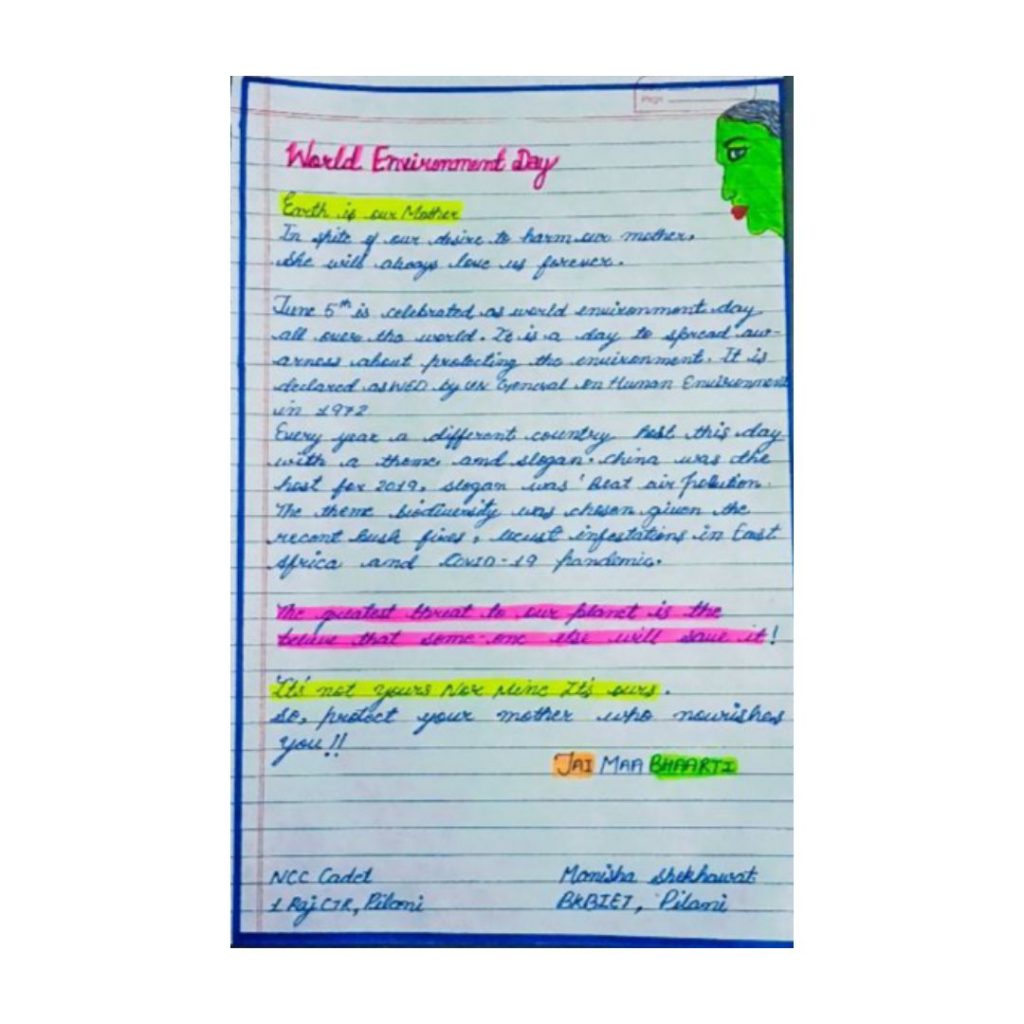 Page
World Environment Day
Earth is our Mother
In spite of our desire to harm our mother,
She will always love us forever.
June 5th is celebrated as world environment day
all over the world. It is a day to spread aw-
arness about protecting the environment. It is
declared as WED by UN General on Human Environment
in 1972
Every year a different country host this day
with a theme and slogan. China was the
host for 2019, slogan was 'Beat air polution.
The theme biodiversity was chosen given the
recent bush fires, locust infestations in East
Africa and COVID-19 pandemic.
The greatest threat to our planet is the
believe that some-one else will save it!
Its' not yours Nor Mine It's ours.
So, protect your mother who nourishes
you!!
JAI MAA BHAARTI
NCC Cadet
1 Raj CTR, Pilani
Manisha Shekhawat
BKBIET, Pilani